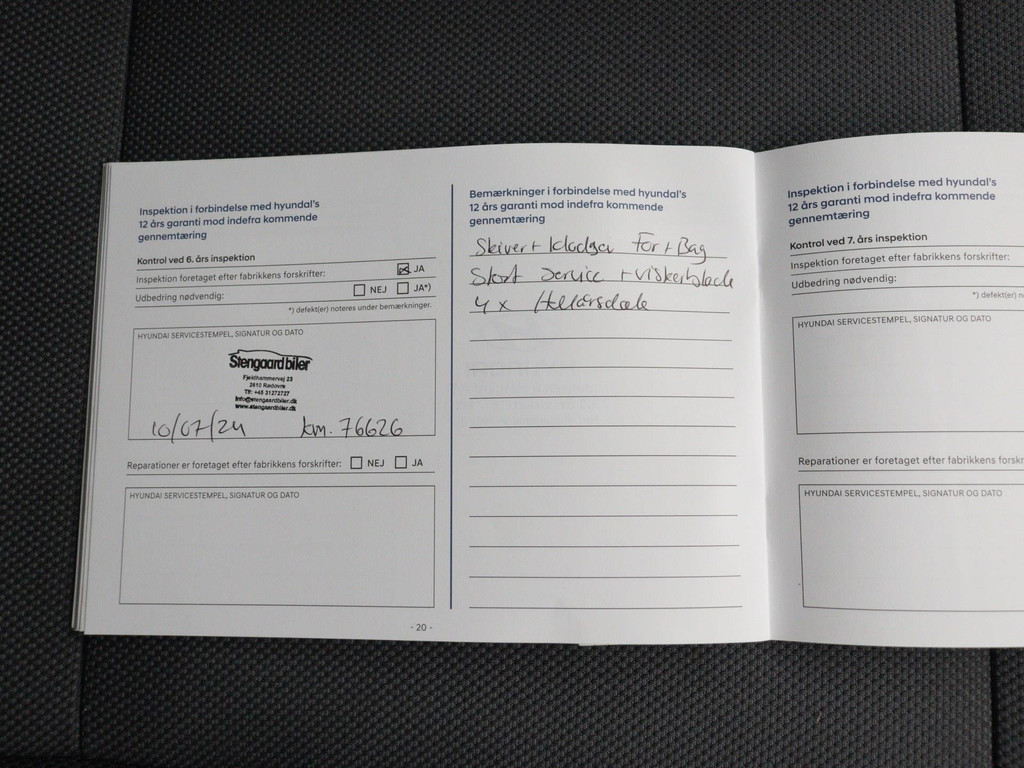 Inspektion i forbindelse med hyundai's
12 års garanti mod indefra kommende
gennemtæring
Kontrol ved 6. års inspektion
Inspektion foretaget efter fabrikkens forskrifter: JA
Udbedring nødvendig: NEJ JA*)
*) defekt(er) noteres under bemærkninger.
HYUNDAI SERVICESTEMPEL, SIGNATUR OG DATO
Stengaard biler
Fjeldhammervej 23
2610 Rødovre
Tlf: +45 31272727
info@stengaardbiler.dk
www.stengaardbiler.dk
10/07/24 km. 76626
Reparationer er foretaget efter fabrikkens forskrifter: NEJ JA
HYUNDAI SERVICESTEMPEL, SIGNATUR OG DATO
- 20 -
Bemærkninger i forbindelse med hyundai's
12 års garanti mod indefra kommende
gennemtæring
Skiver + klodser For + Bag
Stort service + viskerblade
4 x Helårsdæk
Inspektion i forbindelse med hyundai's
12 års garanti mod indefra kommende
gennemtæring
Kontrol ved 7. års inspektion
Inspektion foretaget efter fabrikkens forskrifter:
Udbedring nødvendig:
*) defekt(er) n
HYUNDAI SERVICESTEMPEL, SIGNATUR OG DATO
Reparationer er foretaget efter fabrikkens forskr
HYUNDAI SERVICESTEMPEL, SIGNATUR OG DATO